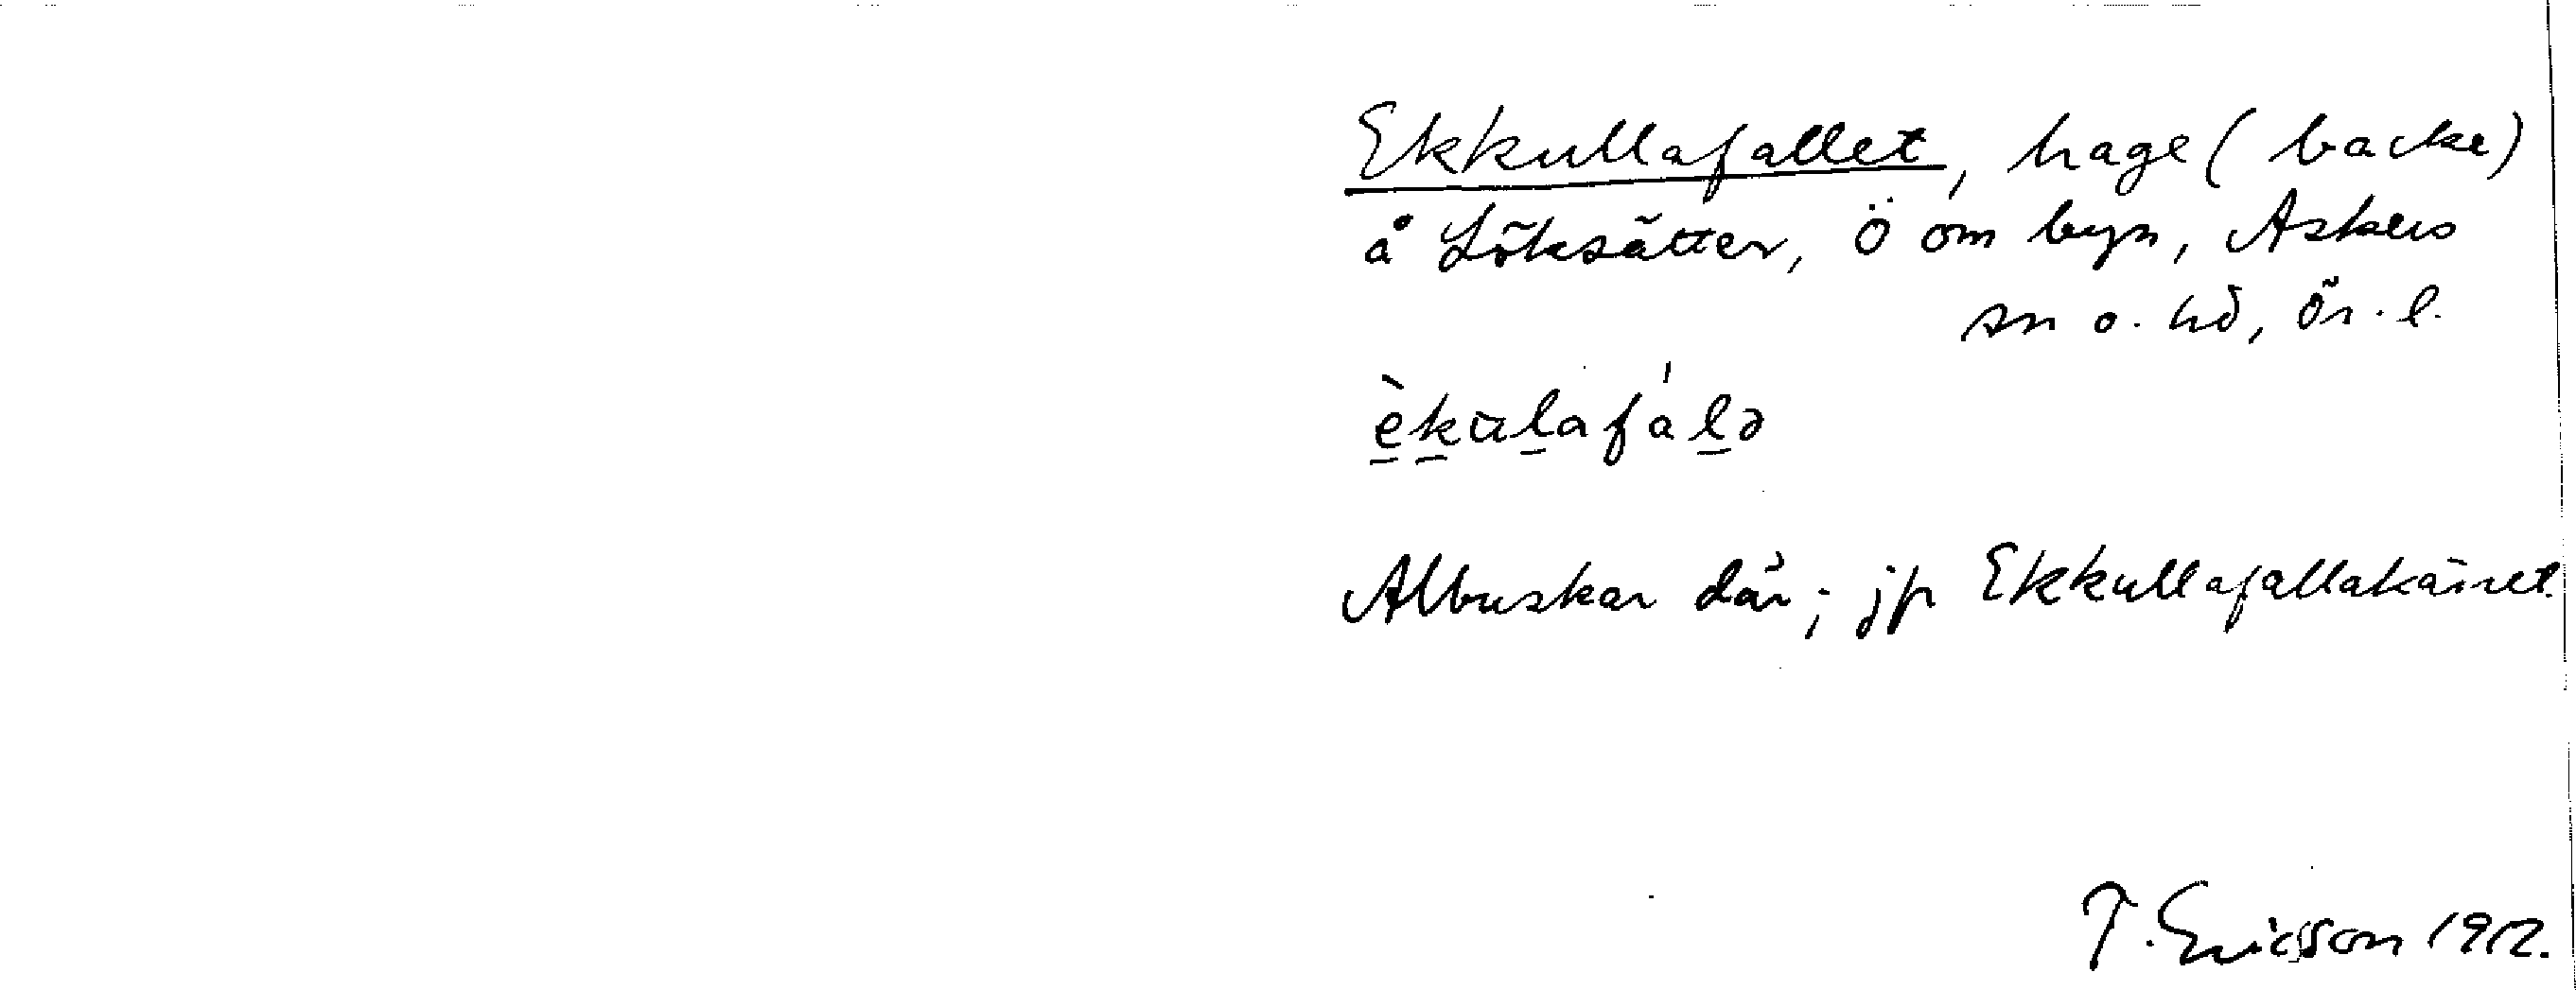 Ekkullafallet, hage (backe)
å Löksätter, Ö om byn, Askers
sn o. hd, ör. l.
èkulafálə
Albuskar där; jfr Ekkullafallakärret.
T. Ericsson 1912.